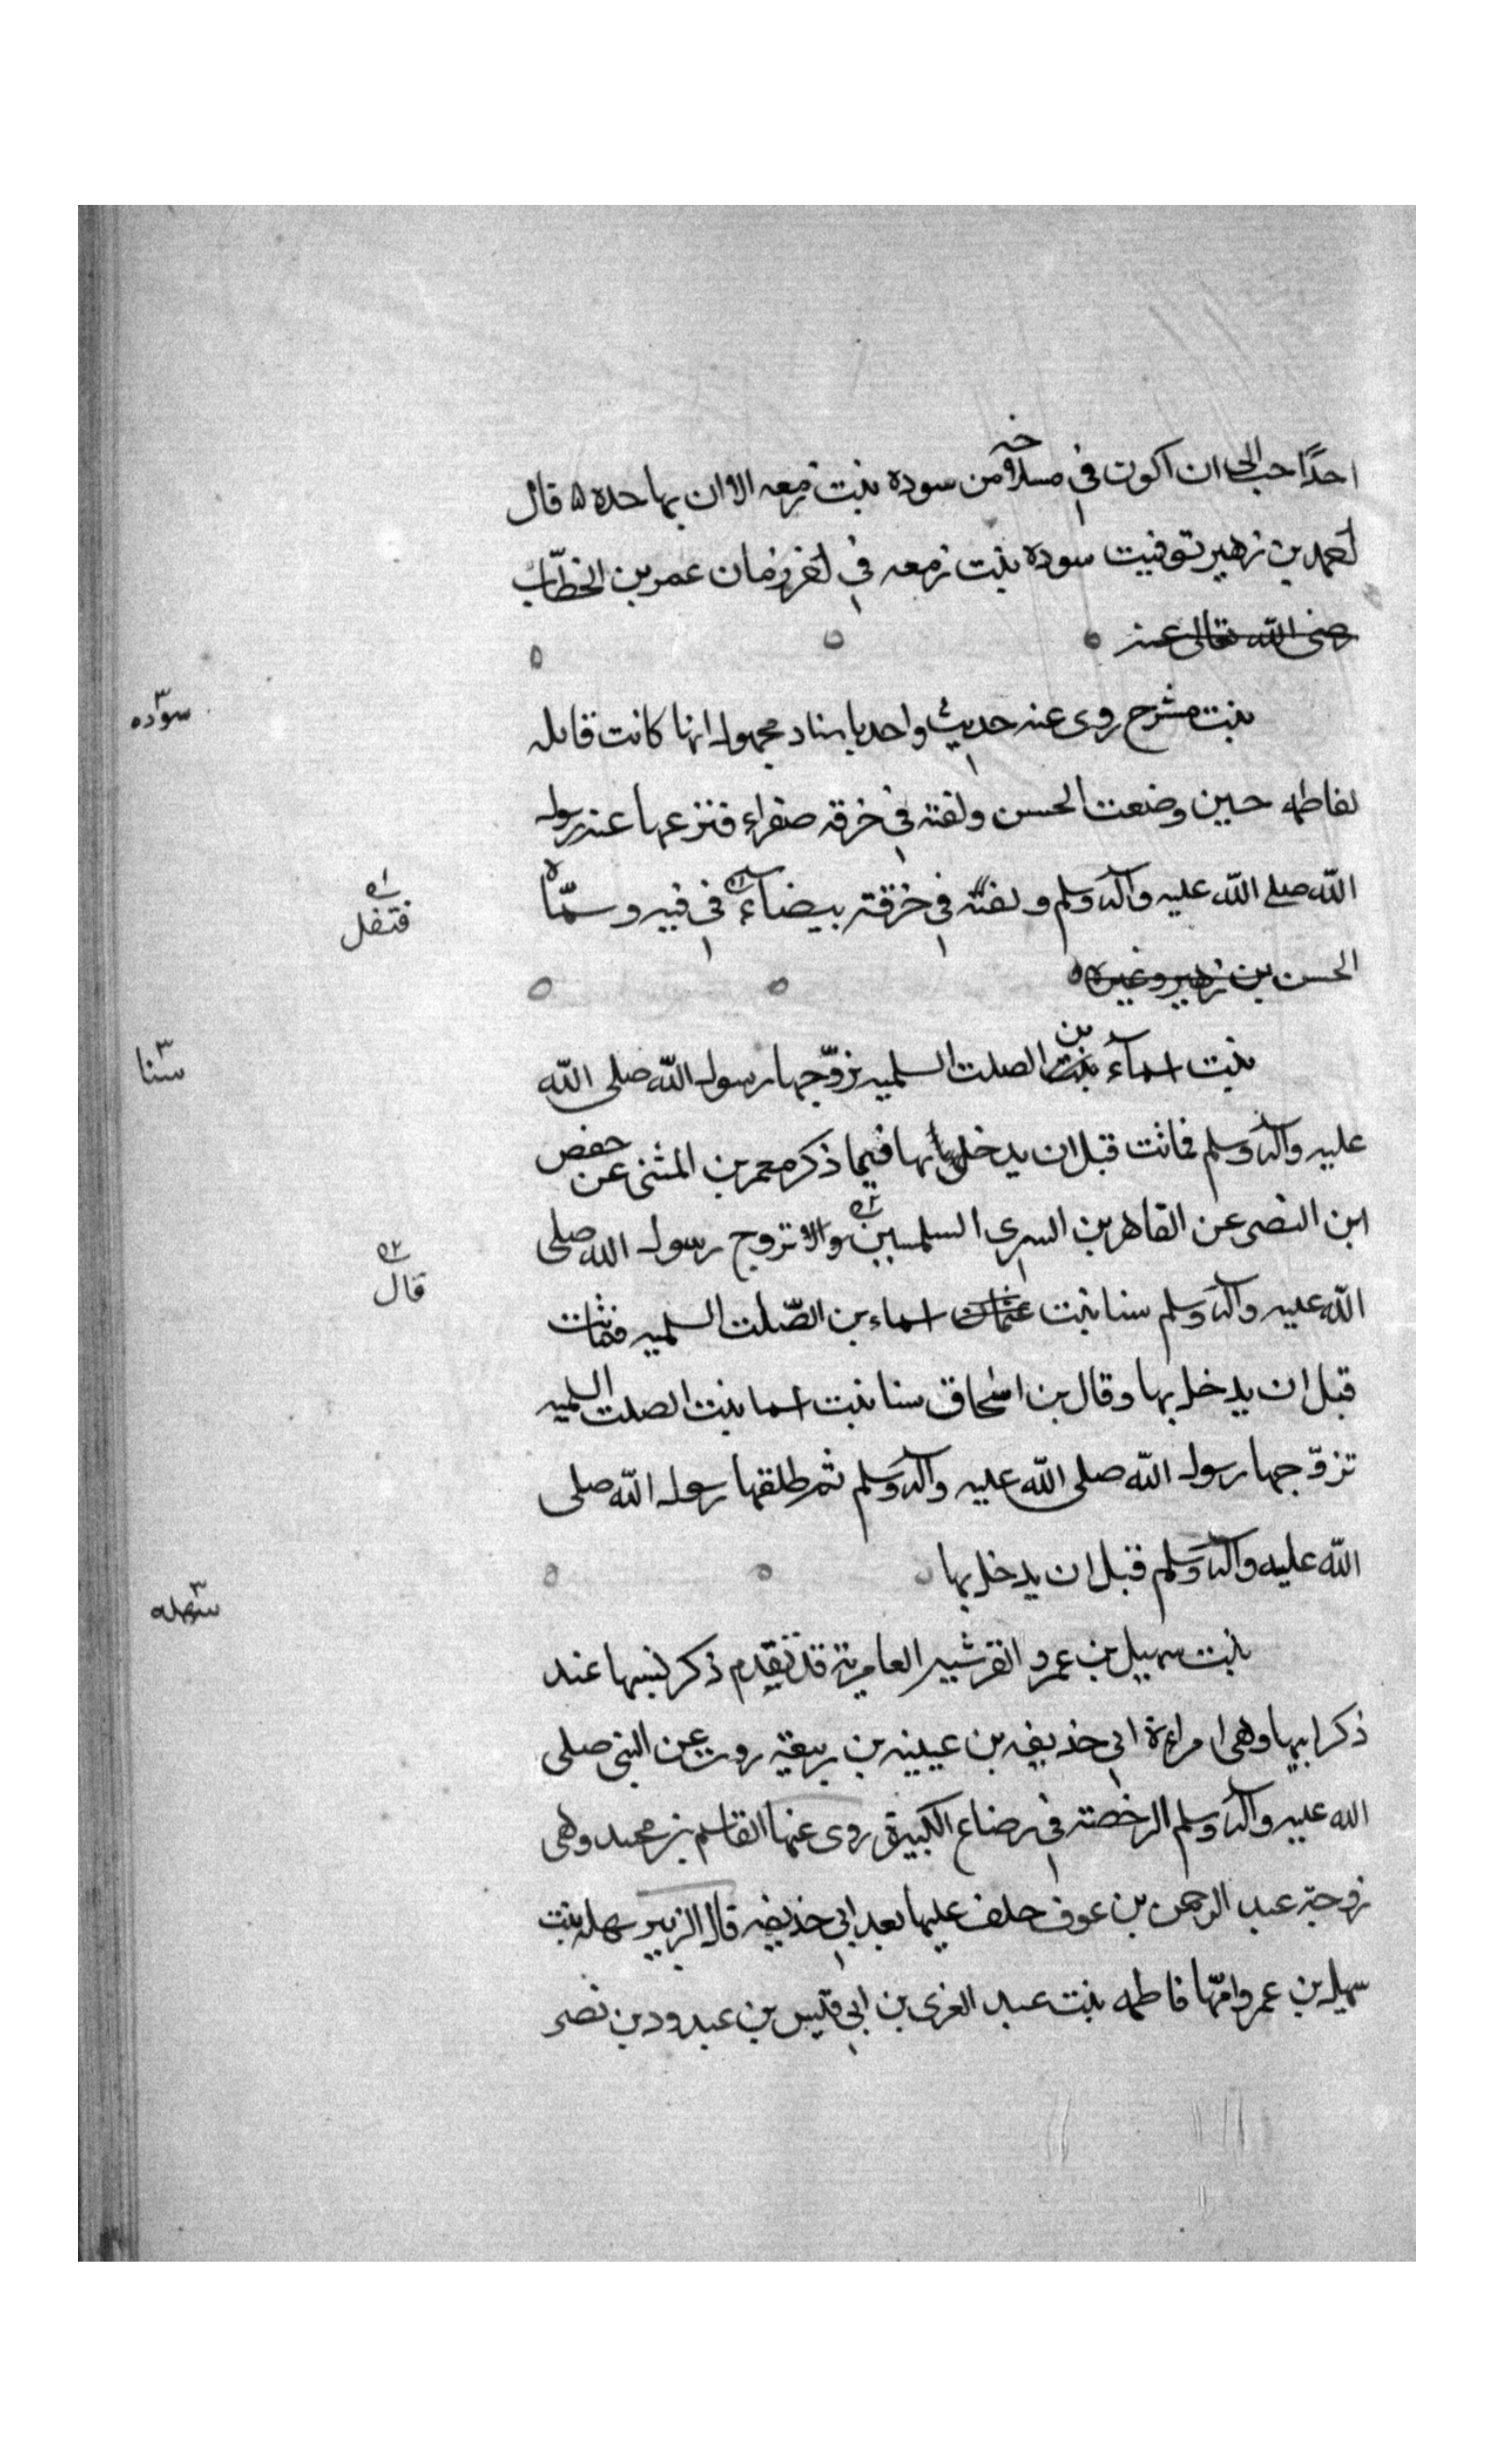 احدًا احب الى ان اكون في مسلاخه من سوده بنت زمعه الا ان بها حده ٥ قال
احمد بن زهير توفيت سوده بنت زمعه في اخر زمان عمر بن الخطّاب
رضى الله تعالى عنه
سوده
بنت مشرح روى عنه حديث واحد باسناد مجهول انها كانت قابله
لفاطمه حين وضعت الحسن ولفته في خرقه صفراء فنزعها عنه رسول
الله صلى الله عليه وآله وسلم ولفته في خرقته بيضاء في فيه وسمّاه
فتفل
الحسن بن زهير وغيره
سنا
بنت اسمآء بن الصلت السلميه تزوّجها رسول الله صلى الله
عليه وآله وسلم فماتت قبل ان يدخل بها فيما ذكر معمر بن المثنى عن حفص
ابن النضى عن القاهر بن السرى السلميين والا تزوج رسول الله صلى
قال
الله عليه وآله وسلم سنا بنت اسماء بن الصّلت السلميه فماتت
قبل ان يدخل بها وقال بن اسحاق سنا بنت اسما بنت الصلت السلميه
تزوّجها رسول الله صلى الله عليه وآله وسلم ثم طلقها رسول الله صلى
الله عليه وآله وسلم قبل ان يدخل بها
سهله
بنت سهيل بن عمرو القرشيه العامرية قد تقدم ذكر نسبها عند
ذكر ابيها وهى امراءة ابي حذيفه بن عيينه بن ربيعة روت عن النبى صلى
الله عليه وآله وسلم الرخصة في رضاع الكبيرة روى عنها القاسم بن محمد وهى
زوجة عبد الرحمن بن عوف حلف عليها بعد ابي حذيفه قال الزبير سهله بنت
سهيل بن عمرو امّها فاطمه بنت عبد العزى بن ابي قيس بن عبدود بن نصر